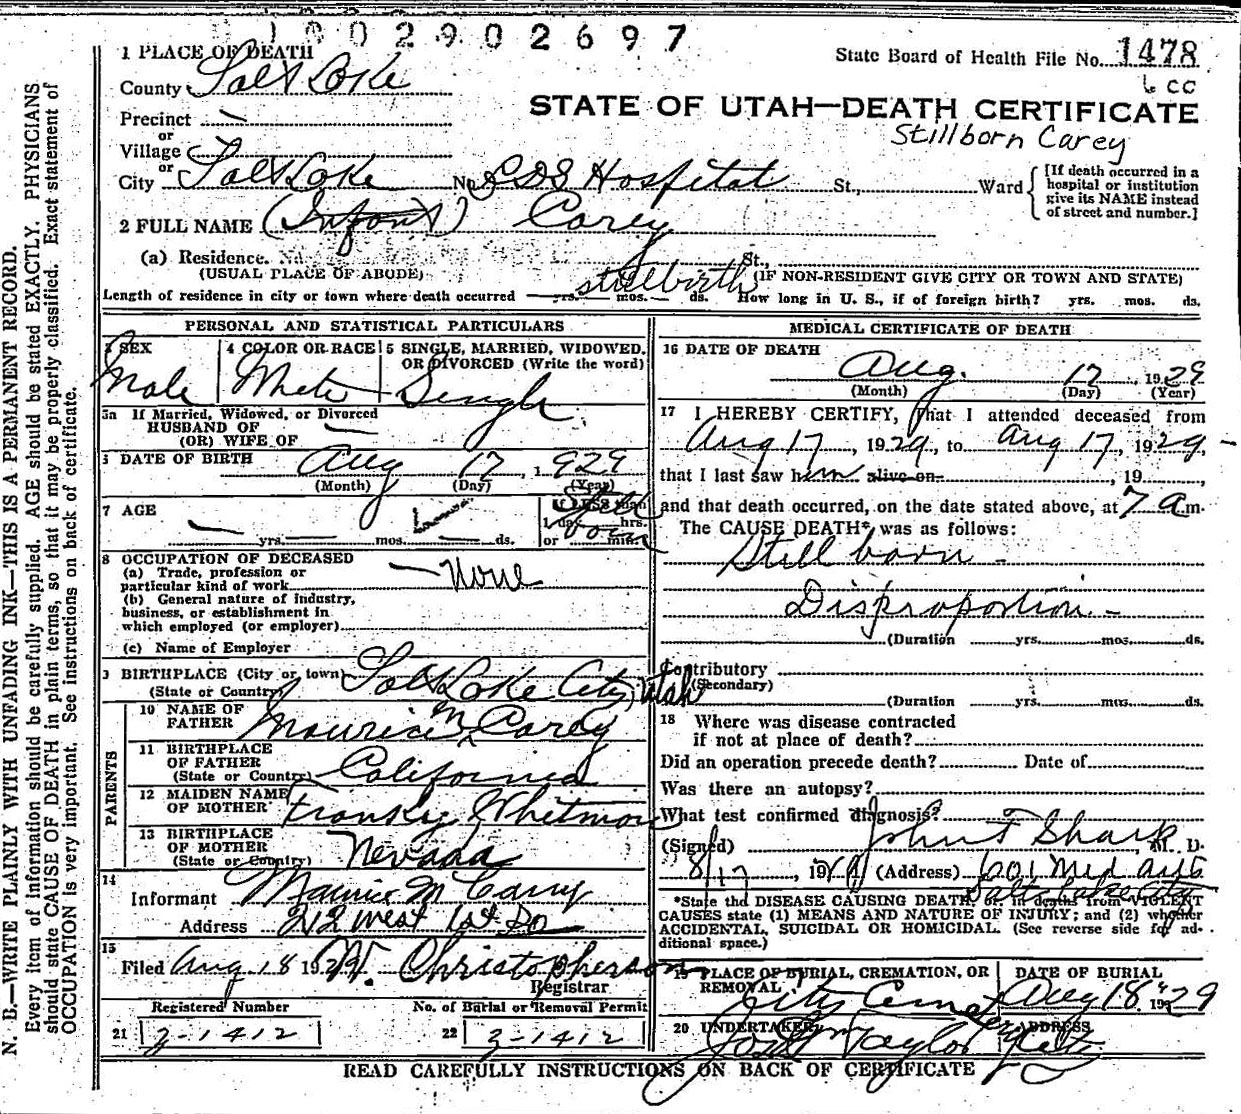 1002902697
1 PLACE OF DEATH
State Board of Health File No. 1478
County Salt Lake
6 cc
STATE OF UTAH—DEATH CERTIFICATE
Precinct —
Stillborn Carey
or
Village
or
City Salt Lake No. LDS Hospital St., Ward
[If death occurred in a
hospital or institution
give its NAME instead
of street and number.]
2 FULL NAME (Infant) Carey
(a) Residence. No. St.,
(USUAL PLACE OF ABODE) stillbirth (IF NON-RESIDENT GIVE CITY OR TOWN AND STATE)
Length of residence in city or town where death occurred — yrs. — mos. — ds. How long in U. S., if of foreign birth? yrs. mos. ds.
PERSONAL AND STATISTICAL PARTICULARS
3 SEX
Male
4 COLOR OR RACE
White
5 SINGLE, MARRIED, WIDOWED,
OR DIVORCED (Write the word)
Single
5a If Married, Widowed, or Divorced
HUSBAND OF —
(OR) WIFE OF
6 DATE OF BIRTH Aug 17 1929
(Month) (Day) (Year)
7 AGE
If LESS than
1 day hrs.
or min.
Still
born
— yrs. mos. — ds.
8 OCCUPATION OF DECEASED
(a) Trade, profession or
particular kind of work — None
(b) General nature of industry,
business, or establishment in
which employed (or employer)
(c) Name of Employer
9 BIRTHPLACE (City or town) Salt Lake City, Utah
(State or Country)
PARENTS
10 NAME OF
FATHER Maurice M Carey
11 BIRTHPLACE
OF FATHER
(State or Country) California
12 MAIDEN NAME
OF MOTHER Whitmore
13 BIRTHPLACE
OF MOTHER
(State or Country) Nevada
14
Informant Maurice M Carey
Address 212 West 1st So
15
Filed Aug 18 1929 W. Christopherson
Registrar
Registered Number No. of Burial or Removal Permit
21 2-1412 22 2-1412
MEDICAL CERTIFICATE OF DEATH
16 DATE OF DEATH
Aug. 17, 1929
(Month) (Day) (Year)
17 I HEREBY CERTIFY, That I attended deceased from
Aug 17, 1929, to Aug 17, 1929,-
that I last saw him alive on , 19
and that death occurred, on the date stated above, at 7 a m.
The CAUSE DEATH* was as follows:
Still born -
Disproportion -
(Duration yrs. mos. ds.
Contributory
(Secondary)
(Duration yrs. mos. ds.
18 Where was disease contracted
if not at place of death?
Did an operation precede death? Date of
Was there an autopsy?
What test confirmed diagnosis?
(Signed) John F Sharp M. D.
8/17, 19 (Address) 601 Med Arts
Salt Lake City
*State thd DISEASE CAUSING DEATH, or in deaths from VIOLENT
CAUSES state (1) MEANS AND NATURE OF INJURY; and (2) whether
ACCIDENTAL, SUICIDAL OR HOMICIDAL. (See reverse side for ad-
ditional space.)
19 PLACE OF BURIAL, CREMATION, OR
REMOVAL
City Cemetery
DATE OF BURIAL
Aug 18, 1929
20 UNDERTAKER
Taylor
ADDRESS
City
READ CAREFULLY INSTRUCTIONS ON BACK OF CERTIFICATE
N. B.—WRITE PLAINLY WITH UNFADING INK—THIS IS A PERMANENT RECORD.
Every item of information should be carefully supplied. AGE should be stated EXACTLY. PHYSICIANS
should state CAUSE OF DEATH in plain terms, so that it may be properly classified. Exact statement of
OCCUPATION is very important. See instructions on back of certificate.